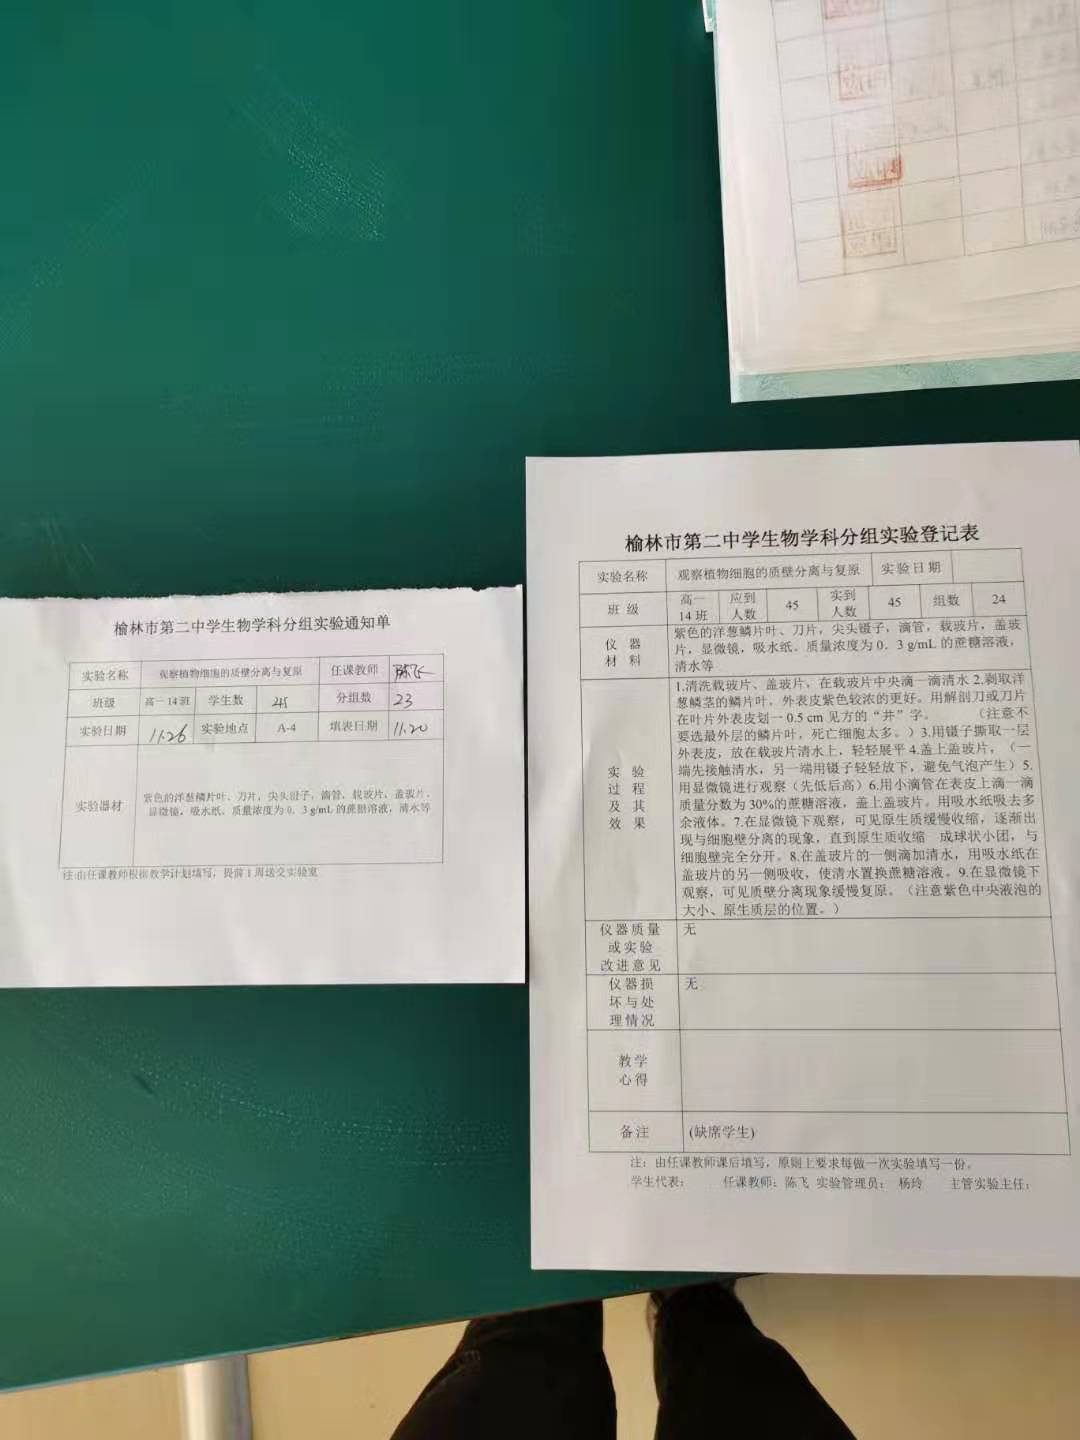 榆林市第二中学生物学科分组实验通知单
实验名称 观察植物细胞的质壁分离与复原 任课教师 陈飞
班级 高一14班 学生数 45 分组数 23
实验日期 11.26 实验地点 A-4 填表日期 11.20
实验器材
紫色的洋葱鳞片叶、刀片，尖头镊子，滴管，载玻片，盖玻片，
显微镜，吸水纸．质量浓度为0．3 g/mL的蔗糖溶液，清水等
注:由任课教师根据教学计划填写，提前1周送交实验室
榆林市第二中学生物学科分组实验登记表
实验名称 观察植物细胞的质壁分离与复原 实验日期
班 级 高一14班 应到人数 45 实到人数 45 组数 24
仪 器
材 料
紫色的洋葱鳞片叶、刀片，尖头镊子，滴管，载玻片，盖玻
片，显微镜，吸水纸．质量浓度为0．3 g/mL的蔗糖溶液，
清水等
实 验
过 程
及 其
效 果
1.清洗载玻片、盖玻片，在载玻片中央滴一滴清水 2.剥取洋
葱鳞茎的鳞片叶，外表皮紫色较浓的更好。用解剖刀或刀片
在叶片外表皮划一 0.5 cm 见方的“井”字。 （注意不
要选最外层的鳞片叶，死亡细胞太多。）3.用镊子撕取一层
外表皮，放在载玻片清水上，轻轻展平 4.盖上盖玻片，（一
端先接触清水，另一端用镊子轻轻放下，避免气泡产生）5.
用显微镜进行观察（先低后高）6.用小滴管在表皮上滴一滴
质量分数为30%的蔗糖溶液，盖上盖玻片。用吸水纸吸去多
余液体。7.在显微镜下观察，可见原生质缓慢收缩，逐渐出
现与细胞壁分离的现象，直到原生质收缩 成球状小团，与
细胞壁完全分开。8.在盖玻片的一侧滴加清水，用吸水纸在
盖玻片的另一侧吸收，使清水置换蔗糖溶液。9.在显微镜下
观察，可见质壁分离现象缓慢复原。（注意紫色中央液泡的
大小、原生质层的位置。）
仪器质量
或实验
改进意见
无
仪器损
坏与处
理情况
无
教学
心得
备注 (缺席学生)
注：由任课教师课后填写，原则上要求每做一次实验填写一份。
学生代表： 任课教师：陈飞 实验管理员： 杨玲 主管实验主任：